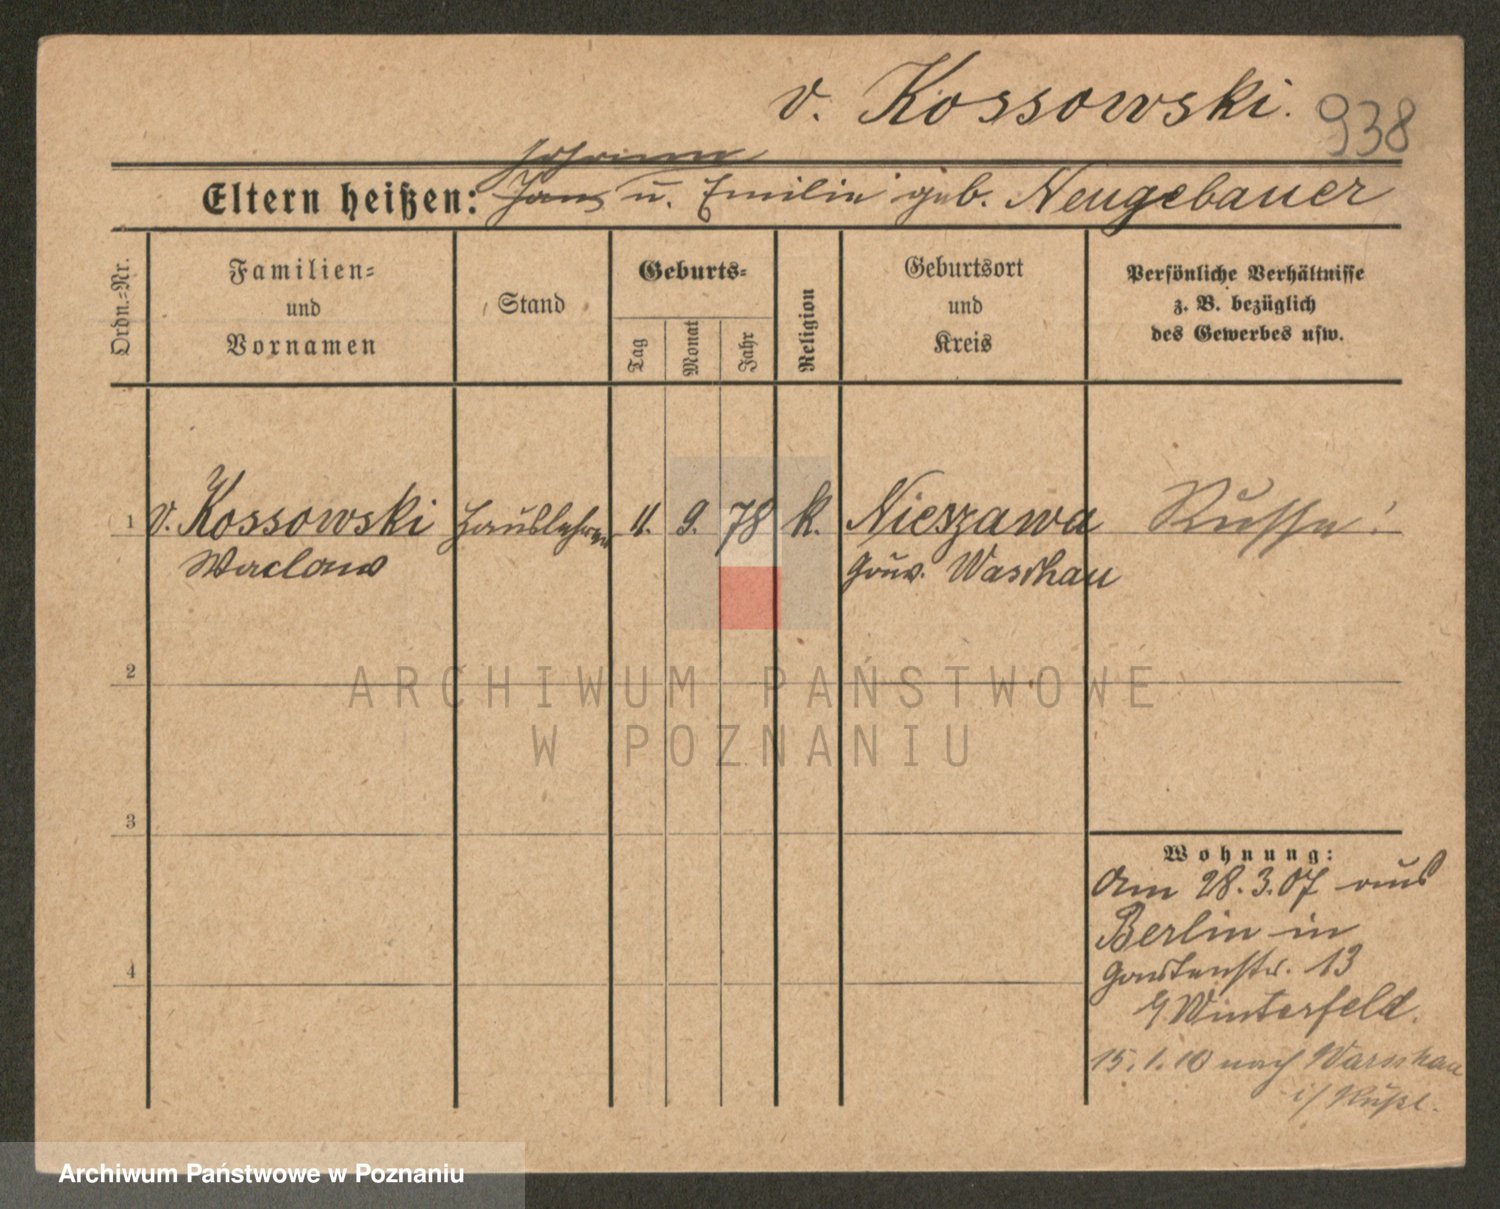 v. Kossowski.
938
Johann
Eltern heißen: Jans u. Emilie geb. Neugebauer
Ordn.=Nr.
Familien=
und
Vornamen
Stand
Geburts=
Tag
Monat
Jahr
Religion
Geburtsort
und
Kreis
Persönliche Verhältnisse
z. B. bezüglich
des Gewerbes usw.
1 v. Kossowski Hauslehrer 11. 9. 78 k. Nieszawa Russe!
Waclaw Gouv. Waschau
ARCHIWUM PAŃSTWOWE
W POZNANIU
2
3
4
Wohnung:
Am 28.3.07 aus
Berlin in
Gartenstr. 13
b/ Winterfeld.
15.1.10 nach Warschau
i/ Rußl.
Archiwum Państwowe w Poznaniu